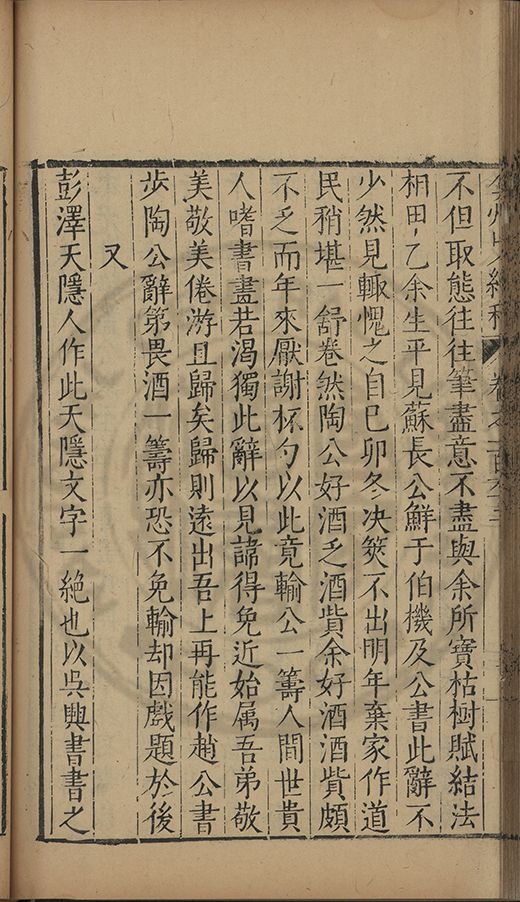 不但取態往往筆盡意不盡與余所寶枯樹賦結法
相田乙余生平見蘇長公鮮于伯機及公書此辭不
少然見輙愧之自已卯冬决筴不出明年棄家作道
民稍堪一舒卷然陶公好酒乏酒貲余好酒酒貲頗
不乏而年來厭謝杯勺以此竟輸公一籌人間世貴
人嗜書畫若渴獨此辭以見諱得免近始属吾弟敬
美敬美倦游且歸矣歸則遠出吾上再能作趙公書
步陶公辭第畏酒一籌亦恐不免輸却因戲題於後
又
彭澤天隱人作此天隱文字一絶也以吳興書書之